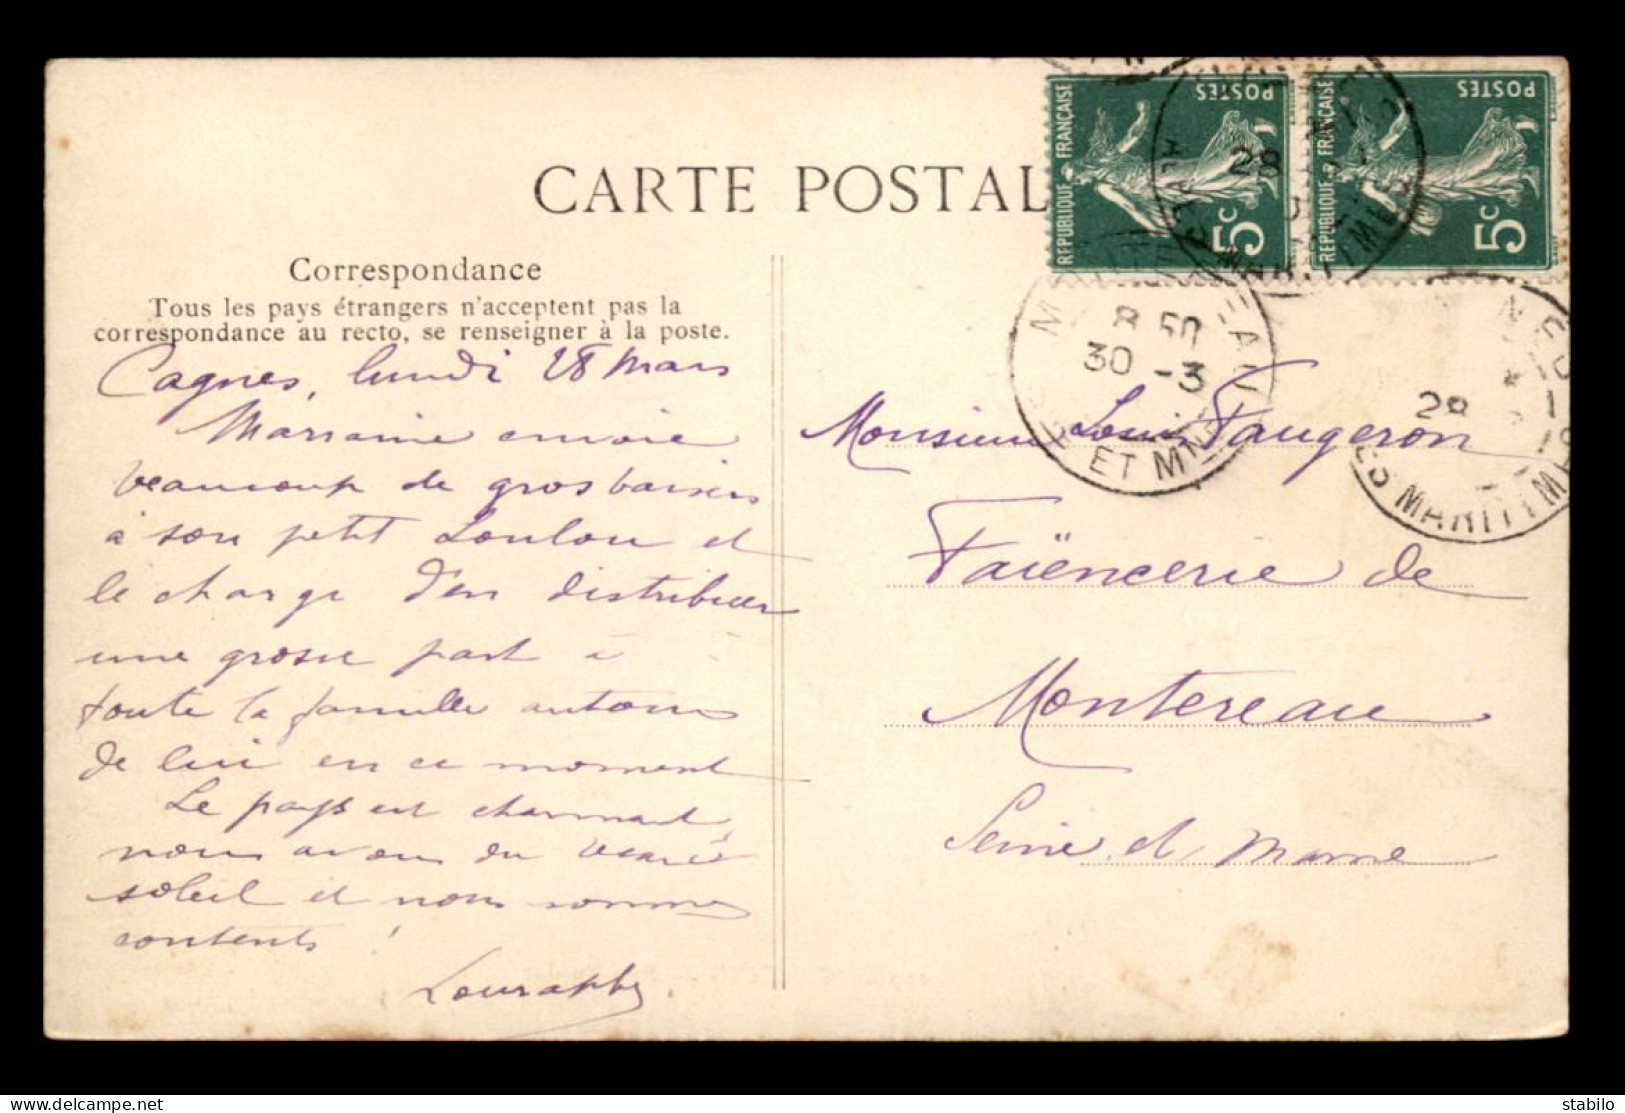 CARTE POSTAL
Correspondance
Tous les pays étrangers n'acceptent pas la
correspondance au recto, se renseigner à la poste.
Cagnes, lundi 28 Mars
Marraine envoie
beaucoup de gros baisers
à son petit Loulou et
le charge d'en distribuer
une grosse part à
toute la famille autour
de lui en ce moment
Le pays est charmant,
nous avons du beau
soleil et nous sommes
contents !
REPUBLIQUE FRANÇAISE
POSTES
5c
REPUBLIQUE FRANÇAISE
POSTES
5c
28
8 50
30 -3
ET MNE
28
ES MARITIME
Monsieur Louis Faugeron
Faïencerie de
Montereau
Seine et Marne
delcampe.net
stabilo